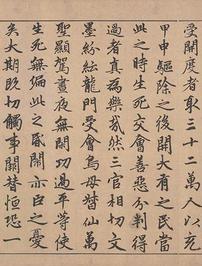 受開度者取三十二萬人以充
甲申驅除之後開大有之民當
此之時生死交會善惡分判得
過者真為樂哉然三官相切文
墨紛紜龍門受會鳥母督仙萬
聖顯駕晝夜無閒功過平等使
生死無緬此之昏閙亦臼之憂
矣大期既切觸事關替恒恐一